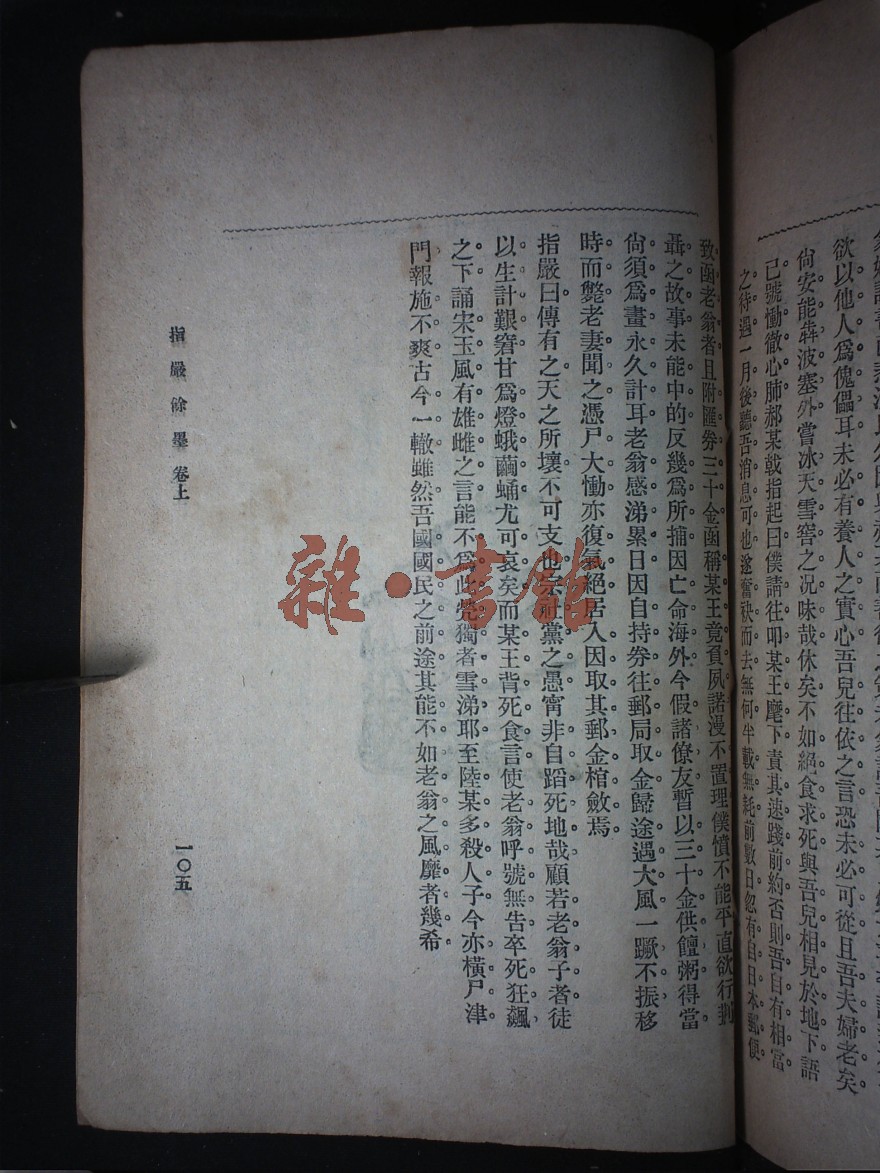 欲以他人爲傀儡耳未必有養人之實心吾兒往依之言恐未必可從且吾夫婦老矣
尙安能犇波塞外嘗冰天雪窖之况味哉休矣不如絕食求死與吾兒相見於地下語
已號慟徹心肺郝某戟指起曰僕請往叩某王麾下責其速踐前約否則吾自有相當
之待遇一月後聽吾消息可也遂奮袂而去無何半載無耗前數日忽有自日本郵便
致函老翁者且附匯劵三十金函稱某王竟負夙諾漫不置理僕憤不能平直欲行
聶之故事未能中的反幾爲所捕因亡命海外今假諸僚友暫以三十金供饘粥得當
尙須爲畫永久計耳老翁感涕累日因自持劵往郵局取金歸途遇大風一蹶不振移
時而斃老妻聞之憑尸大慟亦復氣絕居人因取其郵金棺斂焉
指嚴曰傳有之天之所壞不可支也宗社黨之愚寧非自蹈死地哉顧若老翁子者徒
以生計艱窘甘爲燈蛾繭蛹尤可哀矣而某王背死食言使老翁呼號無告卒死狂飆
之下誦宋玉風有雄雌之言能不爲此煢獨者雪涕耶至陸某多殺人子今亦橫尸津
門報施不爽古今一轍雖然吾國國民之前途其能不如老翁之風靡者幾希
指嚴餘墨 卷上
一〇五
雜·書館